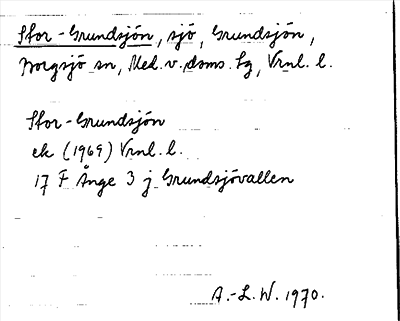 Stor-Grundsjön, sjö, Grundsjön,
Borgsjö sn, Med.v. doms. tg, Vrnl. l.
Stor-Grundsjön
ek (1969) Vrnl. l.
17 F Ånge 3 j Grundsjövallen
A.-L.W. 1970.